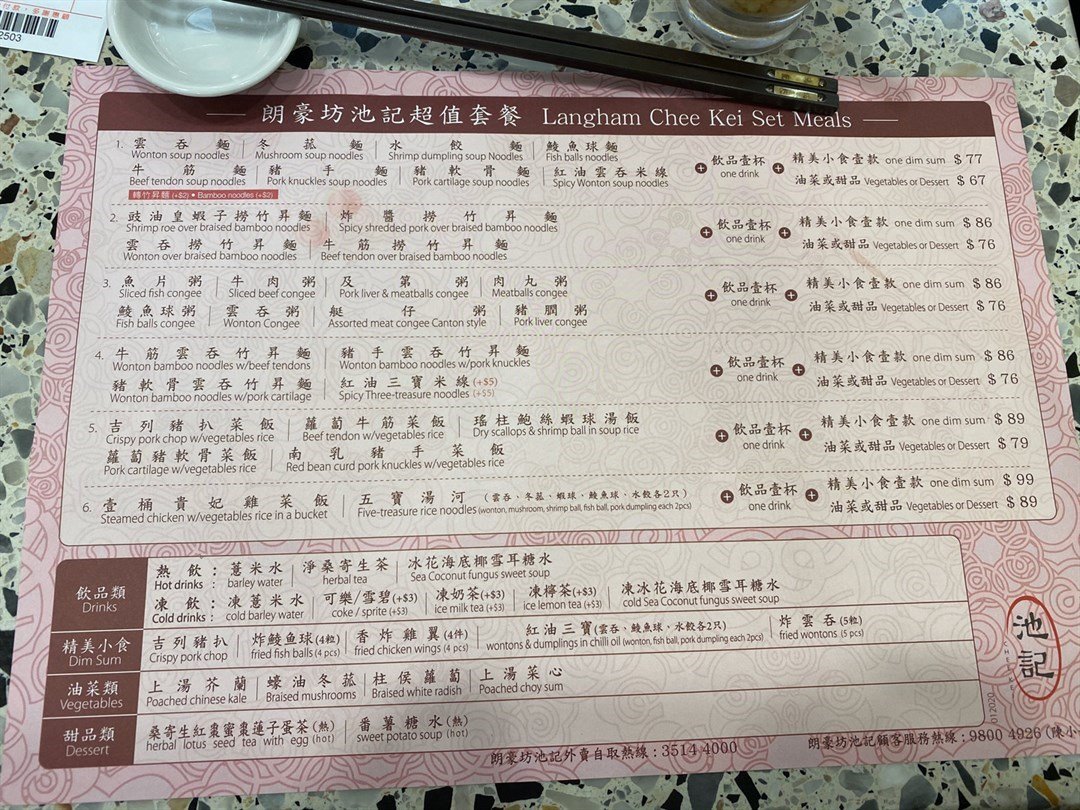 位設，多謝惠顧
2503
朗豪坊池記超值套餐 Langham Chee Kei Set Meals
1. 雲吞麵 冬菇麵 水餃麵 鯪魚球麵
Wonton soup noodles Mushroom soup noodles Shrimp dumpling soup Noodles Fish balls noodles
牛筋麵 豬手麵 豬軟骨麵 紅油雲吞米線
Beef tendon soup noodles Pork knuckles soup noodles Pork cartilage soup noodles Spicy Wonton soup noodles
轉竹昇麵 (+$2) • Bamboo noodles (+$2)
+ 飲品壹杯 + 精美小食壹款 one dim sum $ 77
one drink 油菜或甜品 Vegetables or Dessert $ 67
2. 豉油皇蝦子撈竹昇麵 炸醬撈竹昇麵
Shrimp roe over braised bamboo noodles Spicy shredded pork over braised bamboo noodles
雲吞撈竹昇麵 牛筋撈竹昇麵
Wonton over braised bamboo noodles Beef tendon over braised bamboo noodles
+ 飲品壹杯 + 精美小食壹款 one dim sum $ 86
one drink 油菜或甜品 Vegetables or Dessert $ 76
3. 魚片粥 牛肉粥 及第粥 肉丸粥
Sliced fish congee Sliced beef congee Pork liver & meatballs congee Meatballs congee
鯪魚球粥 雲吞粥 艇仔粥 豬膶粥
Fish balls congee Wonton Congee Assorted meat congee Canton style Pork liver congee
+ 飲品壹杯 + 精美小食壹款 one dim sum $ 86
one drink 油菜或甜品 Vegetables or Dessert $ 76
4. 牛筋雲吞竹昇麵 豬手雲吞竹昇麵
Wonton bamboo noodles w/beef tendons Wonton bamboo noodles w/pork knuckles
豬軟骨雲吞竹昇麵 紅油三寶米線 (+$5)
Wonton bamboo noodles w/pork cartilage Spicy Three-treasure noodles (+$5)
+ 飲品壹杯 + 精美小食壹款 one dim sum $ 86
one drink 油菜或甜品 Vegetables or Dessert $ 76
5. 吉列豬扒菜飯 蘿蔔牛筋菜飯 瑤柱鮑絲蝦球湯飯
Crispy pork chop w/vegetables rice Beef tendon w/vegetables rice Dry scallops & shrimp ball in soup rice
蘿蔔豬軟骨菜飯 南乳豬手菜飯
Pork cartilage w/vegetables rice Red bean curd pork knuckles w/vegetables rice
+ 飲品壹杯 + 精美小食壹款 one dim sum $ 89
one drink 油菜或甜品 Vegetables or Dessert $ 79
6. 壹桶貴妃雞菜飯 五寶湯河 （雲吞、冬菇、蝦球、鯪魚球、水餃各2只）
Steamed chicken w/vegetables rice in a bucket Five-treasure rice noodles (wonton, mushroom, shrimp ball, fish ball, pork dumpling each 2pcs)
+ 飲品壹杯 + 精美小食壹款 one dim sum $ 99
one drink 油菜或甜品 Vegetables or Dessert $ 89
飲品類
Drinks
熱飲： 薏米水 淨桑寄生茶 冰花海底椰雪耳糖水
Hot drinks : barley water herbal tea Sea Coconut fungus sweet soup
凍飲： 凍薏米水 可樂/雪碧(+$3) 凍奶茶(+$3) 凍檸茶(+$3) 凍冰花海底椰雪耳糖水
Cold drinks : cold barley water coke / sprite (+$3) ice milk tea (+$3) ice lemon tea (+$3) cold Sea Coconut fungus sweet soup
精美小食
Dim Sum
吉列豬扒 炸鯪魚球(4粒) 香炸雞翼(4件) 紅油三寶(雲吞、鯪魚球、水餃各2只) 炸雲吞(5粒)
Crispy pork chop fried fish balls (4 pcs) fried chicken wings (4 pcs) wontons & dumplings in chilli oil (wonton, fish ball, pork dumpling each 2pcs) fried wontons (5 pcs)
油菜類
Vegetables
上湯芥蘭 蠔油冬菇 柱侯蘿蔔 上湯菜心
Poached chinese kale Braised mushrooms Braised white radish Poached choy sum
甜品類
Dessert
桑寄生紅棗蜜棗蓮子蛋茶(熱) 番薯糖水(熱)
herbal lotus seed tea with egg (hot) sweet potato soup (hot)
池記
012020
朗豪坊池記外賣自取熱線：3514 4000
朗豪坊池記顧客服務熱線：9800 4926 (陳小